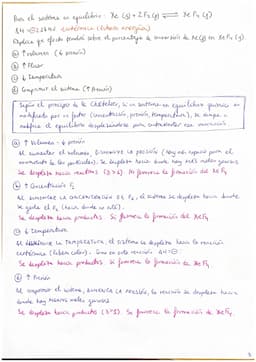 Para el sistema en equilibrio: Xe (g) + 2F₂ (g) ⇌ XeF₄ (g)
ΔH = ⊖ 218 kJ exotérmica (libera energía)
Explica qué efecto tendrá sobre el porcentaje de conversión de Xe(g) en XeF₄ (g)
a) ↑ volumen (↓ presión)
b) ↑ Flúor
c) ↓ temperatura
d) Comprimir el sistema (↑ Presión)
Según el principio de Le Châtelier, si un sistema en equilibrio químico es
modificado por un factor (concentración, presión, temperatura), se rompe o
modifica el equilibrio desplazándose para contrarrestar esa
a) ↑ Volumen - ↓ presión
Al aumentar el volumen, DISMINUYE LA PRESIÓN (hay más espacio para el
movimiento de las partículas). Se desplaza hacia donde hay más moles gaseosos
Se desplaza hacia reactivos (3>1). No favorece la formación del XeF₄
b) ↑ Concentración F₂
Al AUMENTAR LA CONCENTRACIÓN DE F₂, el sistema se desplaza hacia donde
se gasta el F₂ (hacia donde no esté).
Se desplaza hacia productos. Sí favorece la formación del XeF₄
c) ↓ Temperatura
Al DISMINUIR LA TEMPERATURA, el sistema se desplaza hacia la reacción
exotérmica (libera calor). ΔH=⊖
Se desplaza hacia productos. Sí favorece la formación de XeF₄
d) ↑ Presión
Al comprimir el sistema, AUMENTA LA PRESIÓN, la reacción se desplaza hacia
donde hay menos moles gaseosos
Se desplaza hacia productos (3>1). Sí favorece la formación de XeF₄.